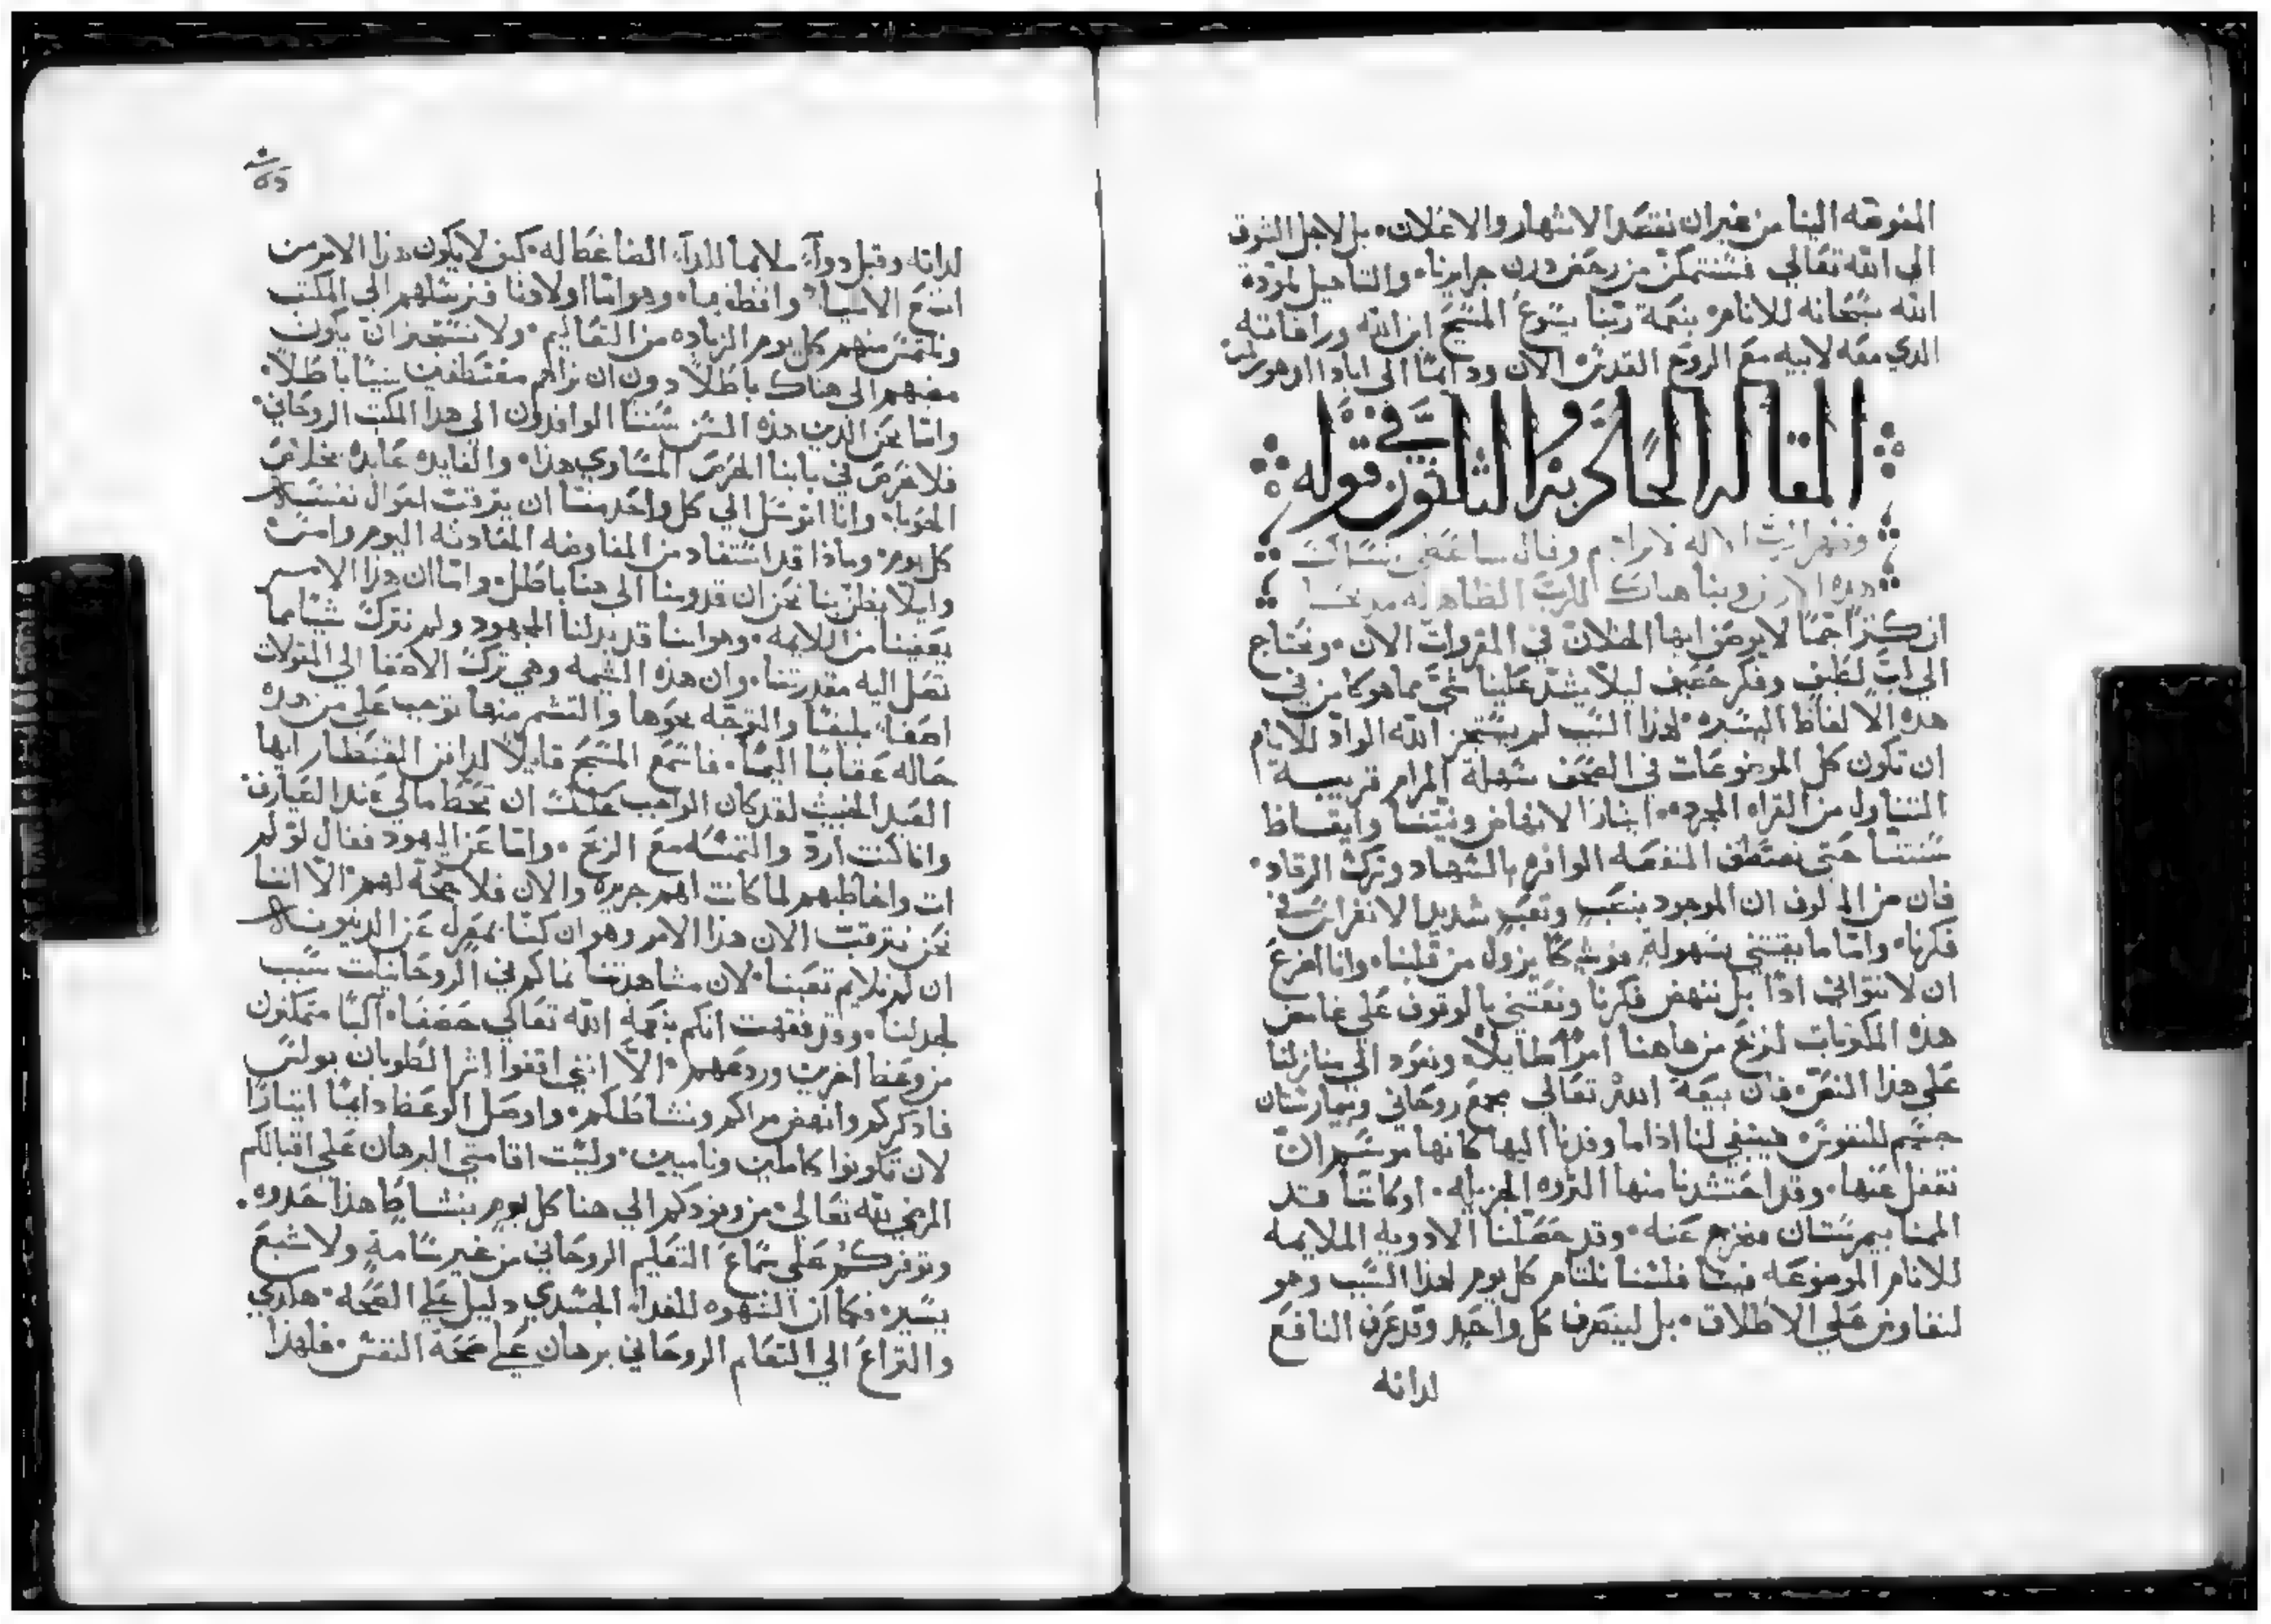 المنوحه الينا من غير ان نقصد الاشهار والاعلان. بل لاجل التوق
الي الله تعالي فسنتمكن من رحض درن جرايرنا. والتاهيل لمودة
الله سبحانه للانام. بنعمة ربنا يسوع المسيح ابن الله ورافاته
الذي معه لابيه مع الروح القدس الان ودايمًا الي اباد الدهور امين
المقاله الحاديه والثلثون في قوله
وظهر الرب الاله لابرام وقال ساعطي نسلك
هذه الارض وبنا هناك للرب الظاهر له مذبحا
ان كنزًا جمًا لا يوصف ايها الخلان في المقروات الان. ونحتاج
الي لب لطيف وفكر حصيف ليلا يشذ علينا شي مما هو كامن في
هذه الالفاظ اليسيره. لهذا السبب لم يستجز الله الواد للانام
ان تكون كل الموضوعات في الصحف سهلة المرام قريبة
التناول من القراه المجرده. ايثارًا لانهاض ونيتنا وايقاظ
سنتنا حتي نقتطف المنفعه الوافره بالسهاد وترك الرقاد.
فان من المالوف ان الموجود بنصب وتعب شديد الانغراس في
فكرنا. واما ما يقتني بسهولة فوشيكًا يزول من قلبنا. وانا اضرع
ان لا نتواني اذًا بل ننهض فكرنا ونعتني بالوقوف علي غامض
هذه المكتوبات لنربح من هاهنا امرًا طايلاً. ونعود الي منازلنا
علي هذا النص. فان بيعة الله تعالي مجمع روحاني وبيمارستان
جسيم للنفوس. فينبغي لنا اذا ما وفدنا اليها كانها موسم ان
نقفل عنها. وقد احتشدنا منها الثروه الجزيله. او كاننا قد
الممنا بيمرستان فنخرج عنه. وقد حصلنا الادويه الملايمه
للالام الموضوعه فينا فلسنا نلتام كل يوم لهذا السبب وهو
لنفاوض علي الاطلاق. بل لينصرف كل واحد وقد عرف النافع
لذاته
لذاته وقبل دوآء ملايما للداء الضاغط له. كيف لا يكون هذا الامر من
اشنع الاشيا. وافظعها. وهو اننا اولادنا فنرسلهم الي المكتب
ونلتمس منهم كل يوم الزياده من التعاليم. ولا نستجيز ان يكون
مضيهم الي هناك باطلاً دون ان نراهم مقتطفين شيًا باطلاً.
واما نحن الذين هذه السن سننا الوافدون الي هذا المكتب الروحاني
فلا نحرص في بابنا الحرص المساوي هذا. والفايده عايده بخلاص
الحوبا. وانا اتوسل الي كل واحد منا ان يرقب احوال نفسه
كل يوم. وماذا قد استفاد من المفاوضه الفلانيه اليوم وامس
وليلا يظن بنا نحن ان قدومنا الي هنا باطل. واما ان هذا الامر
يعفينا من اللايمه. وهو اننا قد بذلنا المجهود ولم نترك شيًا مما
تصل اليه مقدرتنا. وان هذه الشيمه وهي ترك الاصغا الي المقولات
اصغآ بليغًا والتوجه نحوها والتشمر منها توجب علي من هذه
حاله عقابًا اليمًا. فاستمع المسيح قايلاً لدافن القنطار ايها
العبد الخبيث لقد كان الواجب عليك ان تحط مالي عند الصيارف
وانا كنت ارد والتمسه مع الربح. واما عن اليهود فقال لو لم
ات واخاطبهم لما كانت لهم جريره والان فلا حجة لهم الا اننا
نحن نترقب الان هذا الامر وهو ان كنا بمعزل عن الدينونه
ان لم نلايم تعبنا. لان مشاهدتنا نماكم في الروحانيات سبب
لجدلنا. وقد فقهت انكم بنعمة الله تعالي حصفا. البا متمكنون
من وعظ اخرين وردعهم. الا انني اقفوا اثر الطوبان بولس
فاذكركم وانهض مراكم ونشاطكم. واوصل الوعظ دايمًا ايثارًا
لان تكونوا كاملين وناميين. وليست اقامتي البرهان علي اقبالكم
المرضي لله تعالي. من وفودكم الي هنا كل يوم بنشاط هذا حدوه.
وتوفركم علي سماع التعليم الروحاني من غير سامة ولا شبع
يسير. فكما ان الشهوه للغدا. الجسدي دليل علي الصحه. هكذي
والنزاع الي التعليم الروحاني برهان علي صحة النفس. فلهذا